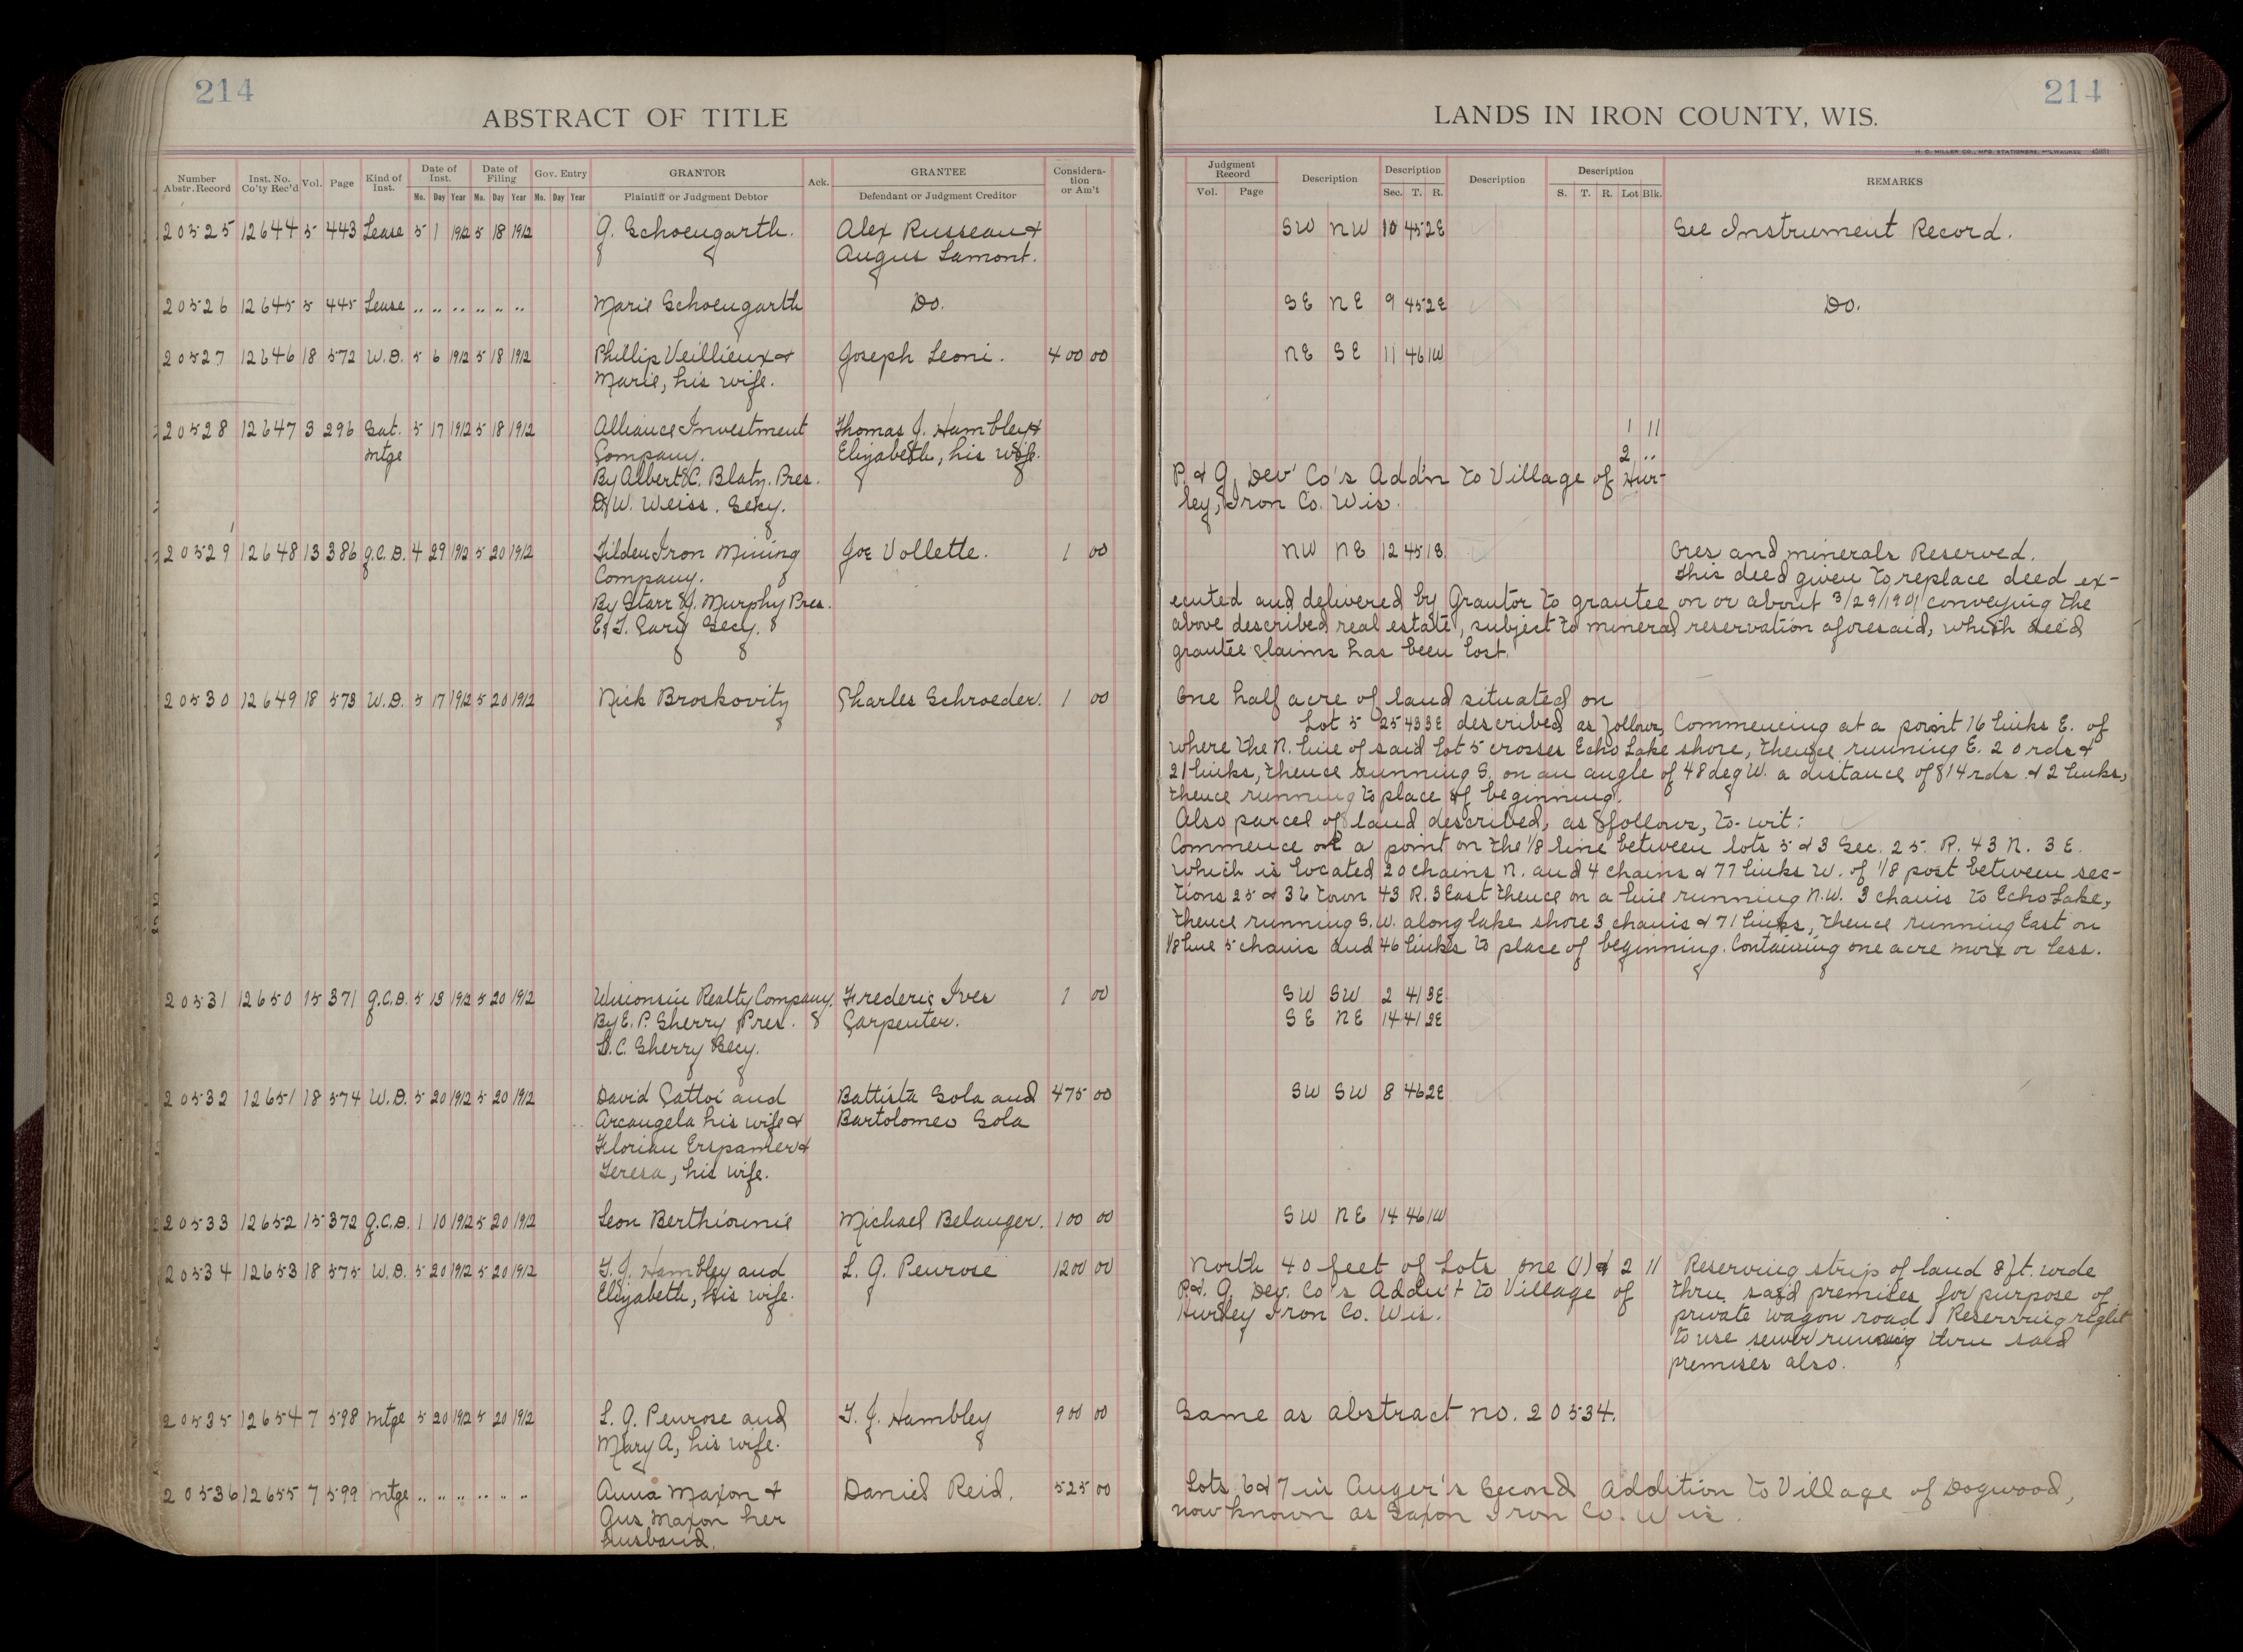 214
ABSTRACT OF TITLE
Number Abstr. Record
Inst. No. Co'ty Rec'd
Vol.
Page
Kind of Inst.
Date of Inst.
Date of Filing
Gov. Entry
GRANTOR
Ack.
GRANTEE
Consideration or Am't
Mo. Day Year Mo. Day Year Mo. Day Year
Plaintiff or Judgment Debtor
Defendant or Judgment Creditor
20525 12644 5 443 Lease 5 1 1912 5 18 1912 G. Schoengarth. Alex Russeau &
Augus Lamont.
20526 12645 5 445 Lease .. .. .. .. .. .. Marie Schoengarth Do.
20527 12646 18 572 W.D. 5 6 1912 5 18 1912 Phillip Veillieux & Joseph Leoni. 400 00
Marie, his wife.
20528 12647 3 296 Sat. 5 17 1912 5 18 1912 Alliance Investment Thomas J. Hambley &
mtge Company. Elizabeth, his wife.
By Albert C. Blatz. Pres.
D.W. Weiss. Secy.
20529 12648 13 386 Q.C.D. 4 29 1912 5 20 1912 Tilden Iron Mining Joe Vollette. 1 00
Company.
By Starr J. Murphy Pres.
E. T. Gary Secy.
20530 12649 18 573 W.D. 5 17 1912 5 20 1912 Nick Broskovitz Charles Schroeder. 1 00
20531 12650 15 371 Q.C.D. 5 13 1912 5 20 1912 Wisconsin Realty Company. Frederic Ives 1 00
By E. P. Sherry Pres. Carpenter.
L.C. Sherry Secy.
20532 12651 18 574 W.D. 5 20 1912 5 20 1912 David Cattoi and Battista Sola and 475 00
Arcangela his wife & Bartolomeo Sola
Florian Erspamer &
Teresa, his wife.
20533 12652 15 372 Q.C.D. 1 10 1912 5 20 1912 Leon Berthiounie Michael Belanger. 100 00
20534 12653 18 575 W.D. 5 20 1912 5 20 1912 T. J. Hambley and L. G. Penrose 1200 00
Elizabeth, his wife.
20535 12654 7 598 mtge 5 20 1912 5 20 1912 L. G. Penrose and T. J. Hambley 900 00
Mary A, his wife.
20536 12655 7 599 mtge .. .. .. .. .. .. Anna Maxon & Daniel Reid. 525 00
Gus Maxon her
husband.
214
LANDS IN IRON COUNTY, WIS.
H. C. MILLER CO., MFG. STATIONERS, MILWAUKEE
Judgment Record
Description
Description
Description
Description
REMARKS
Vol. Page
Sec. T. R.
S. T. R. Lot Blk.
SW NW 10 45 2E See Instrument Record.
SE NE 9 45 2E Do.
NE SE 11 46 1W
1 11
2 ..
P. & G. Dev' Co's Add'n to Village of Hur-
ley, Iron Co. Wis.
NW NE 12 45 1E. Ores and minerals Reserved.
This deed given to replace deed ex-
ecuted and delivered by Grantor to grantee on or about 3/29/1901 conveying the
above described real estate, subject to mineral reservation aforesaid, which deed
grantee claims has been lost.
One half acre of land situated on
Lot 5 25 43 3E described as follows, Commencing at a point 16 links E. of
where the N. line of said Lot 5 crosses Echo Lake shore, thence running E. 20 rds &
21 links, thence running S. on an angle of 48 deg W. a distance of 14 rds & 2 links,
thence running to place of beginning.
Also parcel of land described, as follows, to-wit:
Commence at a point on the 1/8 line between lots 5 & 3 Sec. 25. R. 43 N. 3 E.
which is located 20 chains N. and 4 chains & 77 links W. of 1/8 post between sec-
tions 25 & 36 town 43 R. 3 East thence on a line running N.W. 3 chains to Echo Lake,
thence running S.W. along lake shore 3 chains & 71 links, thence running East on
1/8 line 5 chains and 46 links to place of beginning. Containing one acre more or less.
SW SW 2 41 3E
SE NE 14 41 2E
SW SW 8 46 2E
SW NE 14 46 1W
North 40 feet of Lots one (1) & 2 11 Reserving strip of land 8 ft. wide
P. & G. Dev. Co's Addit to Village of thru said premises for purpose of
Hurley Iron Co. Wis. private wagon road. Reserving right
to use sewer running thru said
premises also.
Same as abstract no. 20534.
Lots 6 & 7 in Auger's Second Addition to Village of Dogwood,
now known as Saxon Iron Co. Wis.